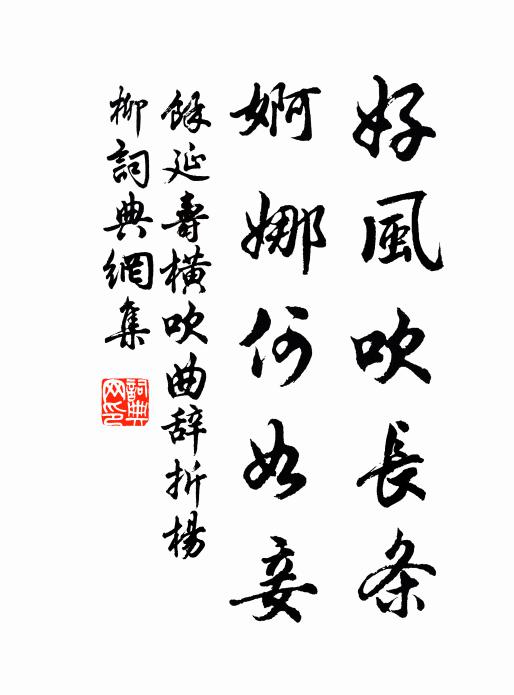 好風吹長条
婀娜何如妾
餘延壽橫吹曲辞折楊
柳詞典網集
詞典网印